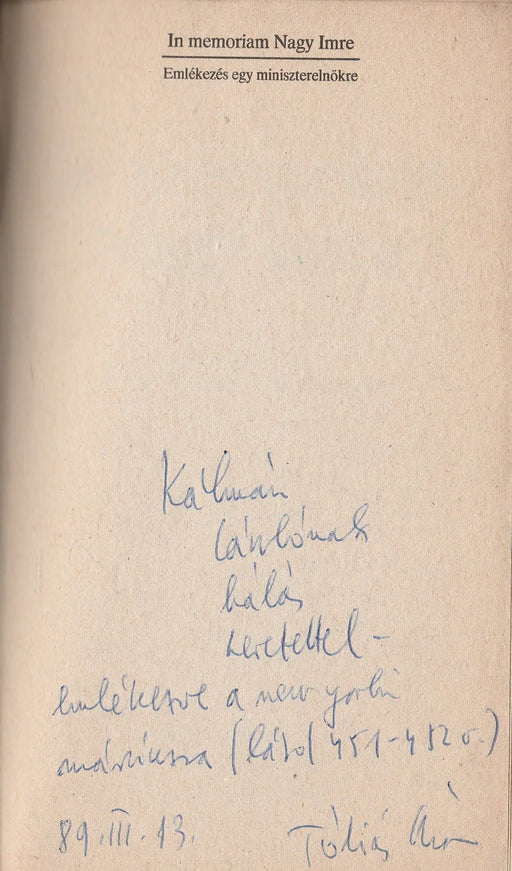 In memoriam Nagy Imre
Emlékezés egy miniszterelnökre
Kálmán
Lászlónak
hálás
szeretettel –
emlékezve a new yorki
márciusra (lásd 451-452 o.)
89. III. 13.
Tóbiás Áron